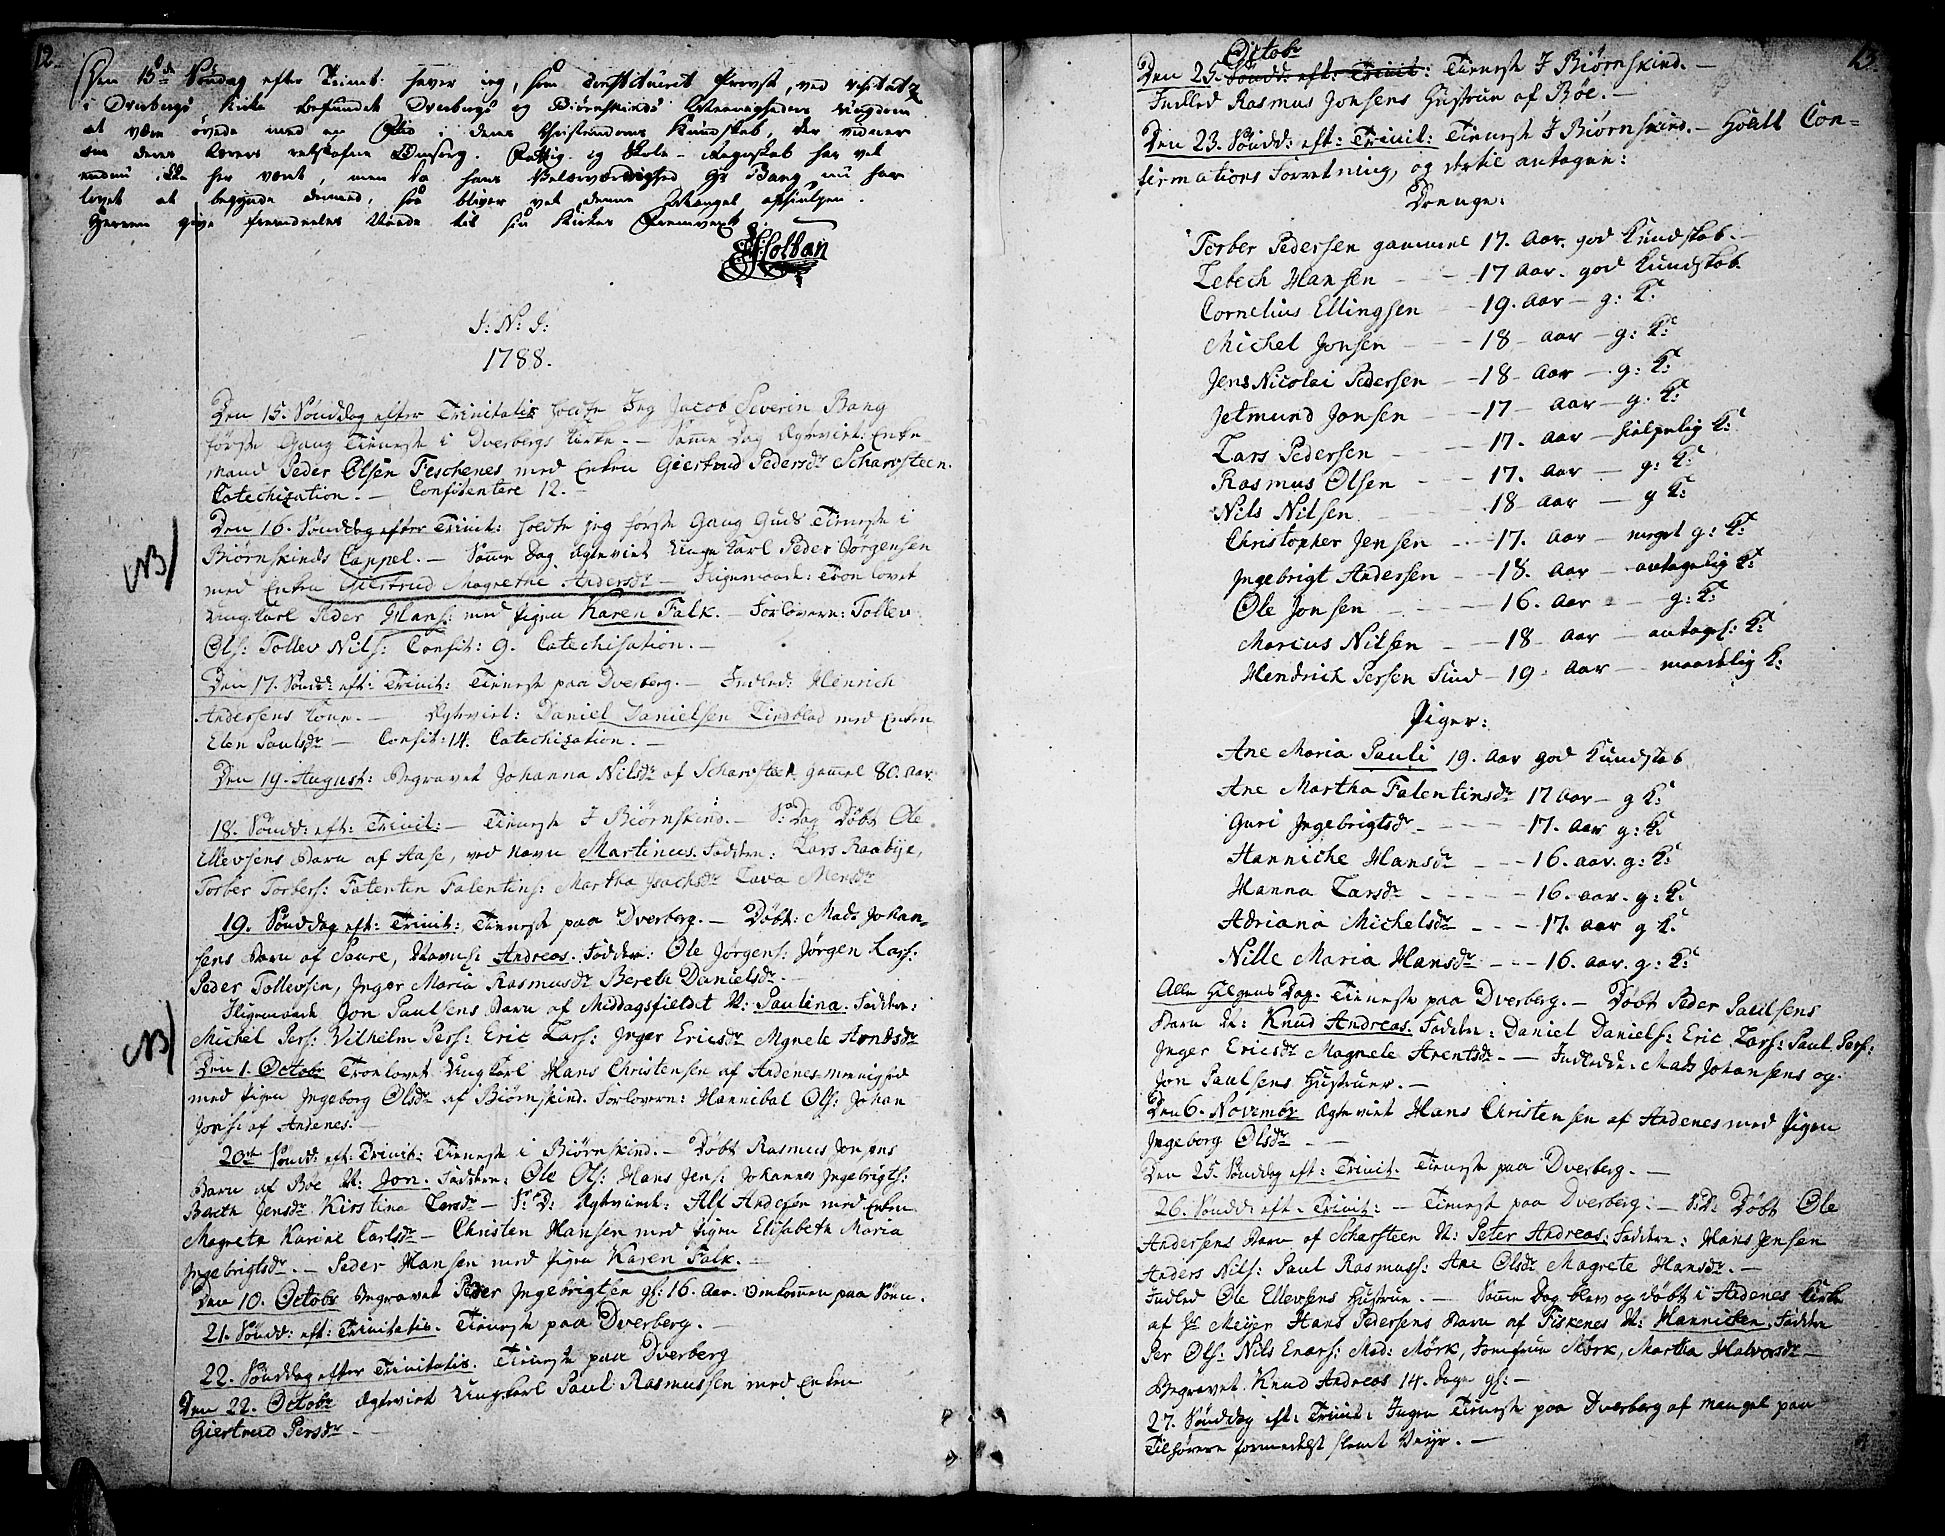 12.
Den 15de Søndag efter Trinit: haver jeg, som Constitueret Provst, ved visitatz
i Dverbergs Kirke befundet Dverbergs og Biørnskinds Meenigheders Ungdom
at være øvede med en Flid i deres Christendoms Kundskab, der vidner
om deres Lærers retskafne Omsorg. Fattig- og Skole-Regnskab har vel
endnu ikke her været, men da hans Velærværdighed Hr Bang nu har
lovet at begynde dermed, saa bliver vel denne Mangel afhiulpen.
Herren give fremdeles Naade til sin Kirkes Fremvext
Colban
I: N: J:
1788.
Den 15. Sønddag efter Trinitatis holdte Jeg Jacob Severin Bang
første Gang Tieneste i Dverbergs Kirke. — Samme Dag Ægtviet: Enke
mand Peder Olsen Feschenes med Enken Giertrud Pedersdr Scharvsteen.
Catechization. — Confitentere 12. —
Den 16. Sønddag efter Trinit: holdte jeg første Gang Guds Tieneste i
Biørnskinds Cappel. — Samme Dag Ægtviet Ungekarl Peder Jørgensen
NB/
med Enken Giertrud Magrethe Andersdr — Iligemaade: Troelovet
Ungkarl Peder Hans: med Pigen Karen Falk. — Forlovere: Tollev
Ols: Tollev Nils: Confit: 9. Catechisation. —
Den 17. Sønd: eft: Trinit: Tieneste paa Dverberg. — Indled: Henrich
Andersens Kone. — Ægtviet: Daniel Danielsen Lindblad med Enken
Elen Paulsdr — Confit: 14. Catechization. —
Den 19. August: Begravet Johanna Nilsdr af Scharvsteen gamel 80. Aar.
18. Sønd: eft: Trinit: — Tieneste I Biørnskind. — S: Dag Døbt Ole
Ellevsens Barn af Aase, ved Navn Martinus. Faddere: Lars Raabye,
Torber Torbers: Falentin Falentins: Martha Isachsdr Lava Mensdr
19. Sønddag eft: Trinit: Tieneste paa Dverberg. — Døbt: Mads Johan-
sens Barn af Saure, Navnl: Andreas. Faddere: Ole Jørgens: Jørgen Lars:
Peder Tollevsen, Inger Maria Rasmusdr Bereth Danielsdr —
Iligemaade Jon Paulsens Barn af Middagsfieldet N: Paulina. Faddere:
NB/
Michel Pers: Vilhelm Pers: Eric Lars: Inger Ericsdr Mgnele Arndsdr
Den 1. Octobr Troelovet Ungkarl Hans Christensen af Andenes-menighed
med Pigen Ingeborg Olsdr af Biørnskind. Forlovere: Hannibal Ols: Johan
Jons: af Andenes. —
20de Sønd: eft: Trinit: Tieneste i Biørnskind. — Døbt Rasmus Jonsens
Barn af Boe N: Jon. Faddere: Ole Ols: Hans Jens: Johannes Ingebrigts:
Bareth Jensdr Kirstina Larsdr — S: D: Ægtviede: Alf Andesen med Enken
Magreta Karine Carlsdr — Christen Hansen med Pigen Elisabeth Maria
Ingebrigtsdr. — Peder Hansen med Pigen Karen Falk. —
Den 10. Octobr Begravet Peder Ingebrigtsen gl: 16. Aar. Omkommen paa Søen.
21. Sønd: eft: Trinitatis. Tieneste paa Dverberg. —
22. Sønddag efter Trinitatis. Tieneste paa Dverberg
Den 22. Octobr Ægtviet Ungkarl Paul Rasmussen med Enken
Giertrud Persdr —
13.
Octobr
Den 25. Sønd: eft: Trinit: Tieneste I Biørnskind. —
Indled Rasmus Jonsens Hustrue af Boe. —
Den 23. Sønd: eft: Trinit: Tieneste I Biørnskind. — Holdt Con-
firmations Forretning, og dertil antagen:
Drenge:
Torber Pedersen gammel 17. Aar. god Kundskab. —
Zebech Hansen — 17 Aar. god Kundskab.
Cornelius Ellingsen — 19. Aar — g: K:
Michel Jonsen — 18 — Aar — g: K:
Jens Nicolai Pedersen — 18 — Aar — g: K:
Jetmund Jonsen — 17 — Aar — g: K:
Lars Pedersen — 17. Aar — hielpelig K:
Rasmus Olsen — 17. Aar — g: K:
Nils Nilsen — 18 Aar — g K:
Christopher Jensen — 17. Aar — meget g: K:
Ingebrigt Andersen — 18. Aar — antagelig K:
Ole Jonsen — 16. Aar — g: K:
Marcus Nilsen — 18 — Aar — antagel: K:
Hendrich Persen Find — 19. Aar — maadelig K:
Piger:
Ane Maria Pauli 19. Aar god Kundskab
Ane Martha Falentinsdr 17 Aar — g K:
Guri Ingebrigtsdr — 17. Aar g: K:
Hanniche Hansdr — 16. Aar. g: K:
Hanna Larsdr — 16. Aar. g: K:
Adriana Michelsdr — 17. Aar g K:
Nille Maria Hansdr — 16. Aar. g: K:
Alle Helgens Dag. Tieneste paa Dverberg. — Døbt Peder Paulsens
Barn N: Knud Andreas. Faddere: Daniel Daniels: Eric Lars: Paul Pers:
Inger Ericsdr Magnele Arentsdr — Indledde: Mads Johansens og
Jon Paulsens Hustruer. —
Den 6. Novembr Ægteviet Hans Christensen af Andenes med Pigen
Ingeborg Olsdr —
Den 25. Sønddag eft: Trinit. Tieneste paa Dverberg. —
26. Sønd: eft. Trinit: — Tieneste paa Dverberg. — S: D: Døbt Ole
Andersens Barn af Scharsteen N: Peter Andreas: Faddere: Hans Jensen
Anders Nils: Paul Rasmuss: Ane Olsdr Magrete Hansdr. —
Indled Ole Ellevsens Hustrue. — Samme Dag blev og døbt i Andenes Kirke
af Hr Meijer Hans Pedersens Barn af Fiskenes N: Hannichen. Faddere
Per Ols: Nils Enars: Mad: Mørk, Jomfrue Mørk, Martha Halvorsdr —
Begravet Knud Andreas 14. Dage gl: —
27. Sønddag eft: Trinit: Ingen Tieneste paa Dverberg af mangel paa
Tilhørere formedelst slemt Vejr. —